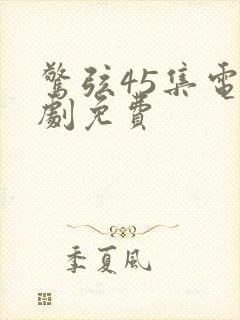 驚弦45集電
劇免費
季夏風